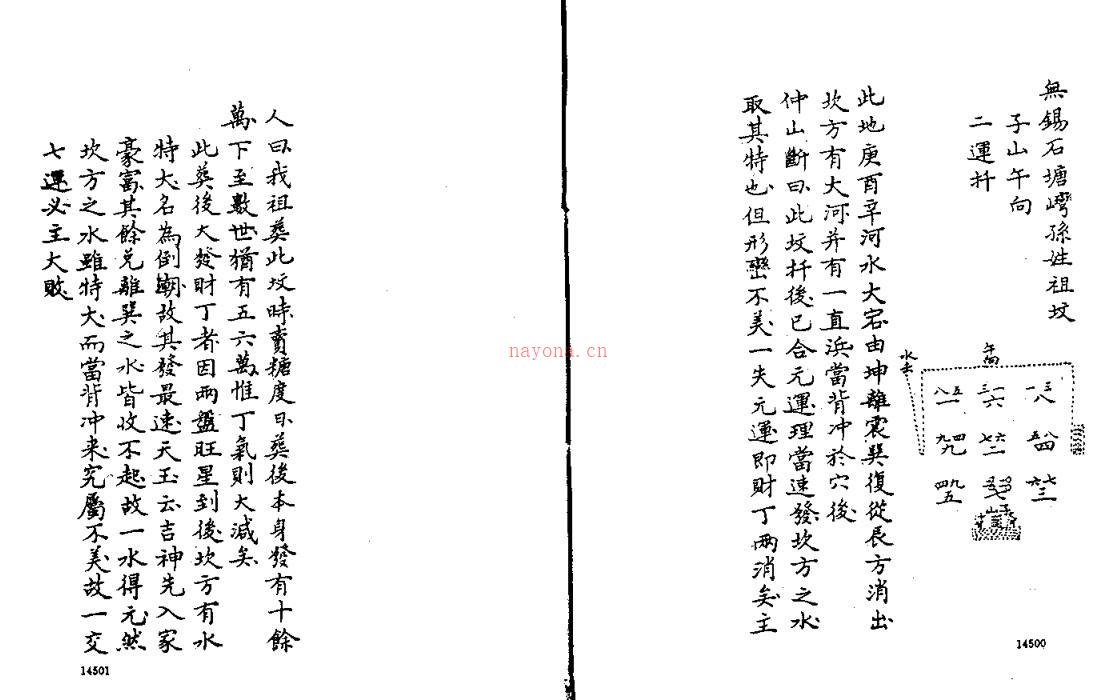 無錫石塘灣孫姓祖坟
子山午向
二運扦
午向
水去
一三八 三一六 八五一
五八四 七六二 九四九
六七三 四九五
此地庚酉辛河水大宕由坤離震巽復從艮方消出
坎方有大河并有一直浜當背冲於穴後
仲山斷曰此坟扦後已合元運理當速發坎方之水
取其特也但形巒不美一失元運即財丁兩消矣主
14500
人曰我祖葬此坟時賣糖度日葬後本身發有十餘
萬下至數世猶有五六萬惟丁氣則大減矣
此葬後大發財丁者因兩盤旺星到後坎方有水
特大名為倒潮故其發最速天玉云吉神先入家
豪富其餘兌離巽之水皆收不起故一水得元然
坎方之水雖特大而當背冲来究屬不美故一交
七運必主大敗
14501
nayona.cn